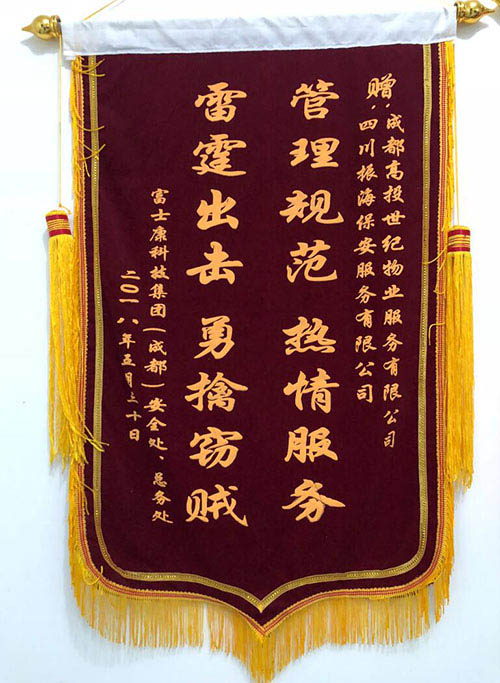 赠：成都高投世纪物业服务有限公司
四川振海保安服务有限公司
管理规范 热情服务
雷霆出击 勇擒窃贼
富士康科技集团（成都）安全处、总务处
二〇一八年五月二十日